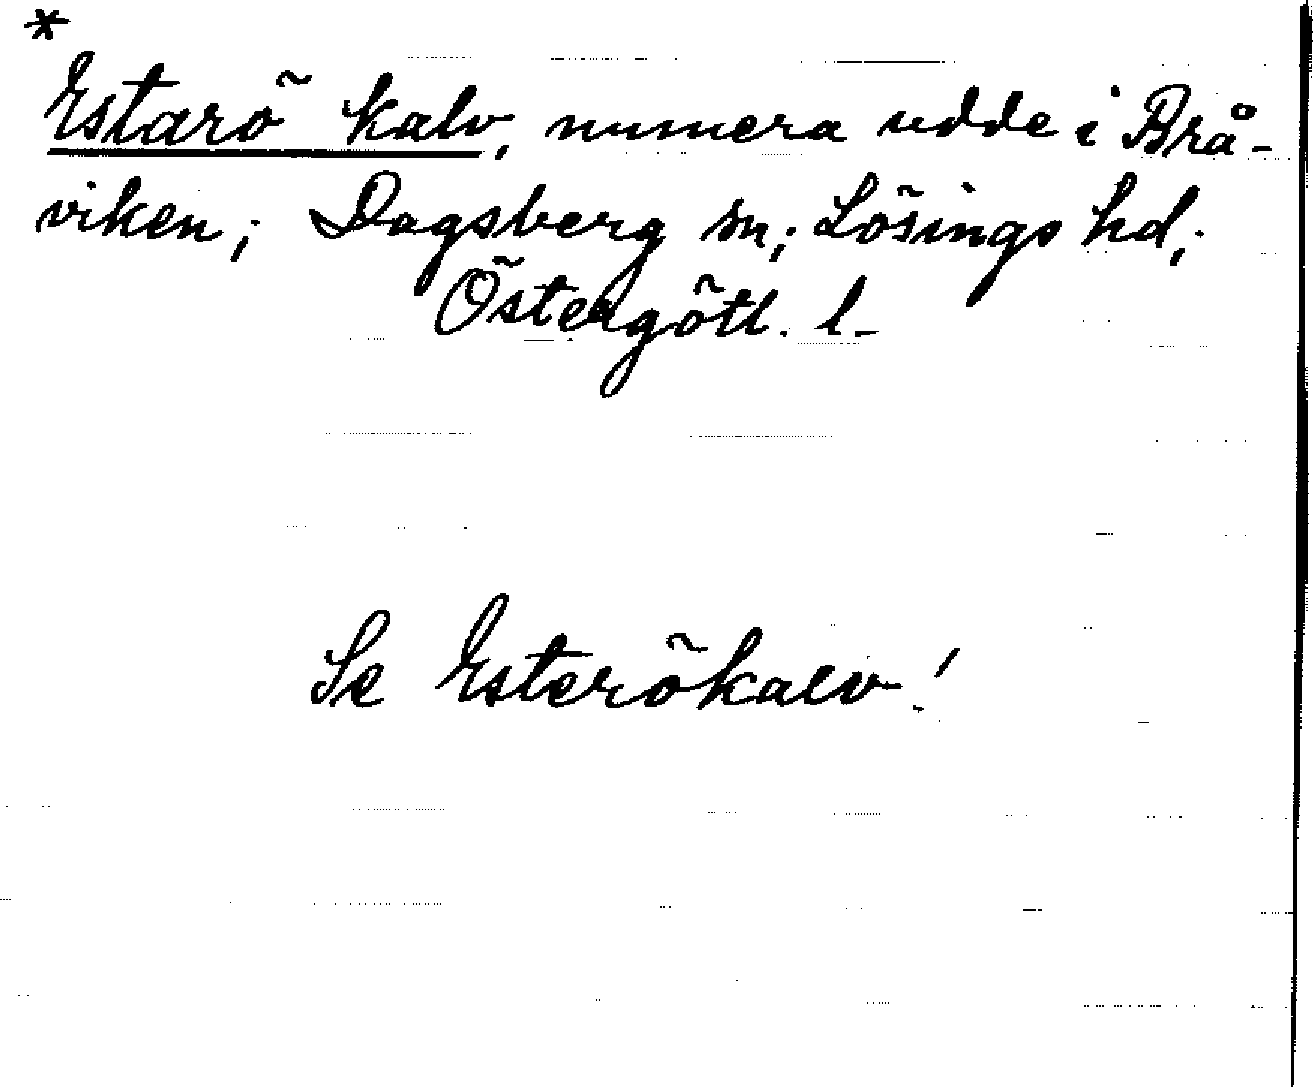 *
Estarö kalv, numera udde i Brå-
viken; Dagsberg sn; Lösings hd;
Östergötl. l.
Se Esterökalv!